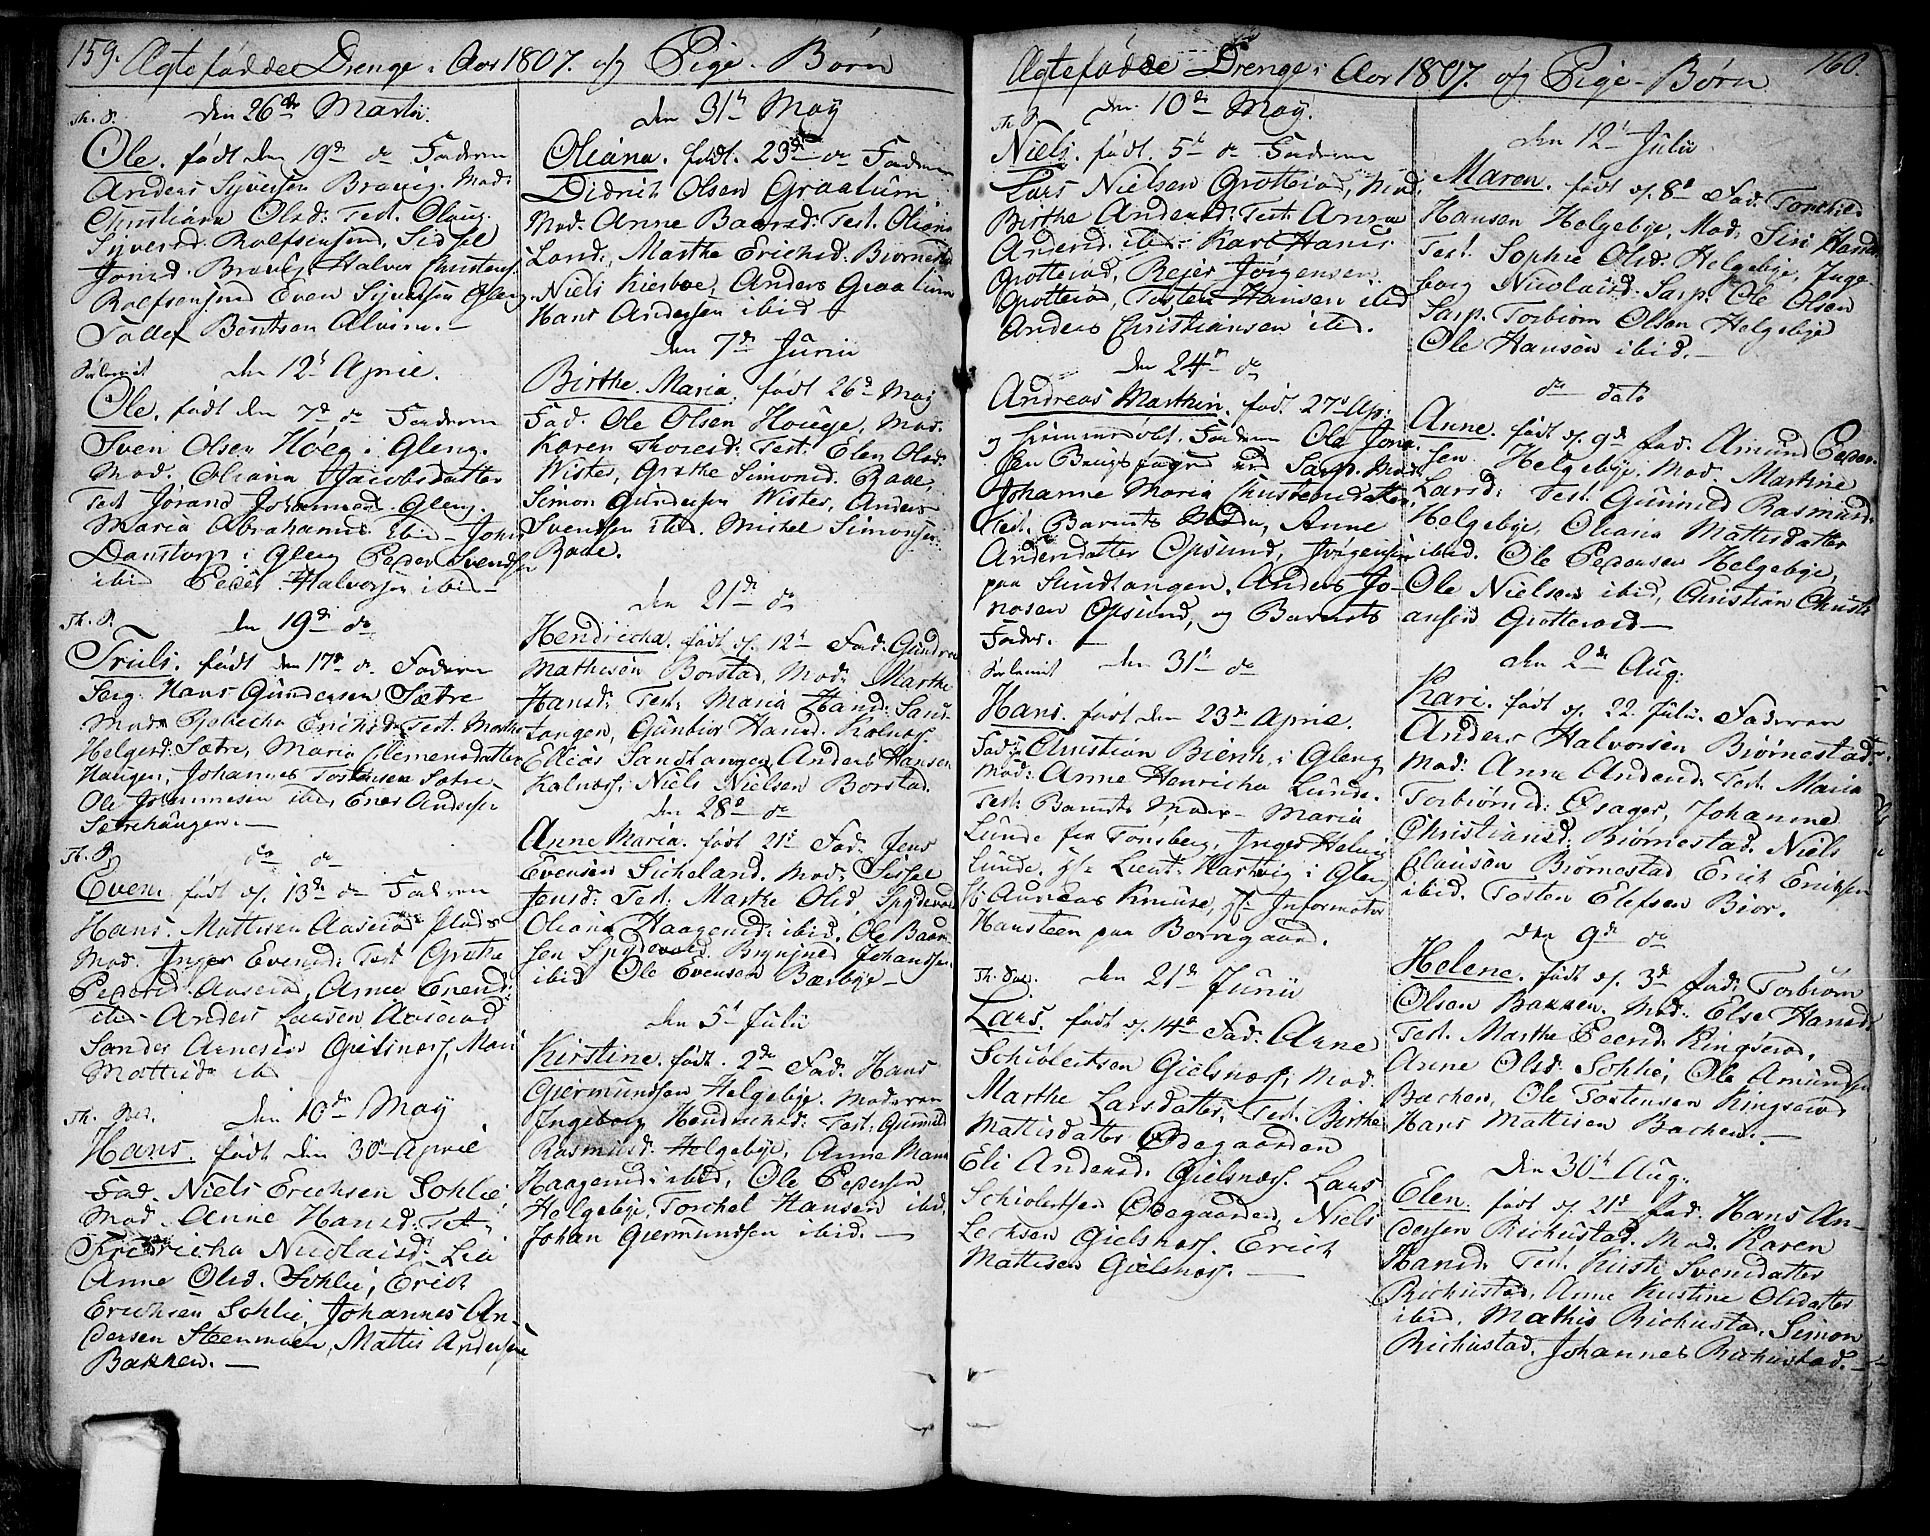 159. Ægtefødde Drenge i Aar 1807. og Pige-Børn
Th. P. den 26de Martii.
Ole. født den 19de do Faderen
Anders Syversen Bravig. Mod:
Christiana Olsd: Test. Olaug
Syversd: Rolfsøusund, Sidsel
Jonsd: Bravig, Halvor Christens:
Rolfsøusund Even Syvertsen Gleng
Tollef Bentsen Alvim. —
den 12te April.
Ole. født den 7de do Faderen
Sven Olsen Høeg i Gleng.
Mod. Oliana Jacobsdatter
Test Jorand Johannesd. Gleng.
Maria Abrahams. Ibid – John
Danstorp i Gleng Peder Svends:
ibid Peder Halvorsen ibid —
Th. P. den 19de do
Truls. født den 17de do Faderen
Serg. Hans Gundersen Sætre
Mod. Rebecha Erichsd: Test. Marthe
Helgesd: Sætre, Maria Clemensdatter
Haugen, Johannes Tostensen Sætre
Ole Johannesen ibid, Ener Andersen
Sætrehaugen. —
Th. P. do do
Even. født d. 13de do Faderen
Hans Mattisen Aaserød Plads
Mod. Inger Evensd: Test Grethe
Pedersd. Aaserød, Anne Evensd:
ibid – Anders Larsen Aaserød
Sander Arnesen Gielsnæs, Mari
Mattisdr ibid
Th. Ped. den 10de May
Hans. født den 30te April
Fad. Niels Erichsen Sohlie
Mod. Anne Hansd: Test:
Fridericha Nicolaisd: Lie
Anne Olsd. Sohlie, Erich
Erichsen Sohlie, Johannes An-
dersen Steenmoen, Mattis Andersen
Bakken. —
den 31te May
Oliana. født. 23de do Faderen
Didrich Olsen Graalum,
Mod. Anne Baarsd: Test. Oliana
Land:, Marthe Erichsd: Biørnestad
Niels Kierboe, Anders Graalum
Hans Andersen ibid —
den 7de Junii
Birthe Maria, født 26de May
Fad. Ole Olsen Houge, Mod.
Karen Thoresd: Test. Elen Olsd:
Wister, Grethe Simonsd. Rade,
Simon Gundersen Wister, Anders
Svendsen ibid. Michel Simonsen
Rade.
den 21de do
Hendricha. født d. 12te Fad: Gunder
Mathisen Borstad, Mod: Marthe
Hansd: Test: Maria Hansd: Sand-
tangen, Gunbior Hansd. Kalnæs.
Ellias Sandtangen, Anders Hansen
Kalnæs, Niels Nielsen Borstad.
den 28de do
Anne Maria. født 21de Fad. Jens
Evensen Sicheland. Mod: Sissel
Jensd: Test: Marthe Olsd. Spydevold
Oliana Haagensd: ibid. Ole Baar-
sen Spydevold. Brynjned Johansen
ibid Ole Evensen Bærbye —
den 5te Julii
Kirstine. født. 2de Fad. Hans
Giermundsen Helgebye. Moderen
Ingeborg Hendrichsd: Test: Gunnild
Rasmusd: Helgebye, Anne Maria
Haagensd: ibid, Ole Pedersen
Helgebye, Torchel Hansen ibid,
Johan Giermundsen ibid. —
Ægtefødde Drenge i Aar 1807. og Pige-Børn 160.
Th. P. den. 10de May.
Niels. født. 5te do Faderen
Lars Nielsen Grotterød, Mod:
Birthe Andersd: Test. Anna
Andersd. ibid. Karl Hans:
Grotterød, Rejer Jørgensen
Grotterød, Tosten Hansen ibid
Anders Christiansen ibid.
den 24de do
Andreas Marthin. fød. 27de Ap:
og hiemmedøbt. Faderen Ole Jona-
sen Brugsfoged ved Sarp. Mod.
Johanne Maria Christensdatter,
Test. Barnets Moder, Anne
Andersdatter Opsund, Jørgensen
paa Sundtangen, Anders Jo-
nasen Opsund, og Barnets
Fader. —
den 31te do
Hans. født den 23de April.
Fad: Christian Bienk, i Gleng
Mod: Anne Henricha Lunde.
Test: Barnets Moder – Maria
Lunde fra Tønsberg, Inger Helvig
Lunde. Hr Lieut: Hartvig i Gleng
Hr Andreas Kruuse, Hr Informator
Hansteen paa Borregaard.
Th. Ped. den 21de Junii
Lars. født d. 14de Fad: Arne
Schiølertsen Gielsnæs, Mod:
Marthe Larsdatter, Test. Birthe
Mattisdatter Ødegaarden
Eli Andersd. Gielsnæs. Lars
Schiolertsen Ødegaarden, Niels
Lechsen Gielsnæs. Erich
Mattisen Gielsnæs. —
den 12te Julii
Maren. født d. 8de Fad. Torchild
Hansen Helgebye, Mod. Siri Hansd:
Test. Sophie Olsd: Helgebye, Inge-
borg Nicolaisd: Sarp. Ole Olsen
Sarp. Torbiørn Olsen Helgebye
Ole Hansen ibid. —
do dato
Anne. født d. 9de Fad. Amund Peder-
sen Helgebye. Mod Martine
Larsd: Test. Gunnild Rasmusd:
Helgebye, Oliana Mattisdatter
ibid. Ole Pedersen Helgebye,
Ole Nielsen ibid, Christian Christi-
ansen Grotterød —
den 2de Aug:
Kari. født d. 22. Julii. Faderen
Anders Halvorsen Biørnestad
Mod: Anne Andersd: Test. Maria
Torbiørnsd: Øsager, Johanne
Christiansd: Biørnestad. Niels
Clausøn Biørnestad Erich Eriksen
ibid. Tosten Elefsen Bior.
den 9de do
Helene. født d. 3de Fad: Torbiørn
Olsen Bakken. Mod: Else Hansd:
Test. Marthe Peersd: Ringserød,
Anne Olsd: Sohlie, Ole Amundsen
Bachen, Ole Tostensen Ringserød
Hans Mattisen Bachen. —
den 30te Aug:
Elen. født d. 21de Fad: Hans An-
dersen Richustad. Mod. Karen
Hansd: Test. Kirsti Svensdatter
Richustad, Anne Kirstine Olsdatter
ibid, Mathis Richustad, Simon
Richustad, Johannes Richustad. —